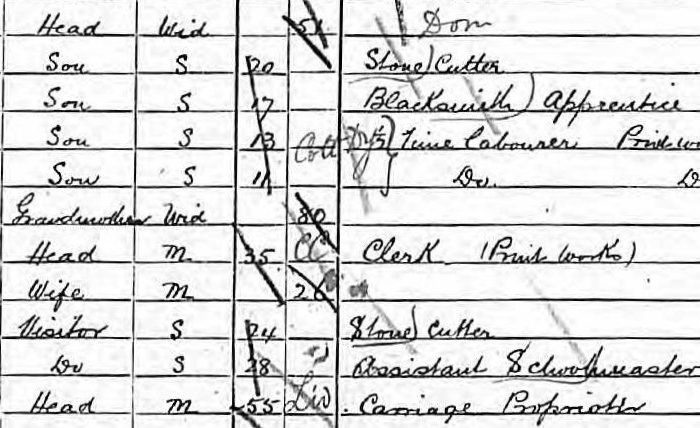 Head Wid 51 Dom
Son S 20 Stone Cutter
Son S 17 Blacksmith Apprentice
Son S 13 Cott ½ Time Labourer
Son S 11 Do. D
Grandmother Wid 80
Head M 35 Clerk (Print Works)
Wife M 26
Visitor S 24 Stone Cutter
Do S 28 Assistant Schoolmaster
Head M 55 Carriage Proprietor